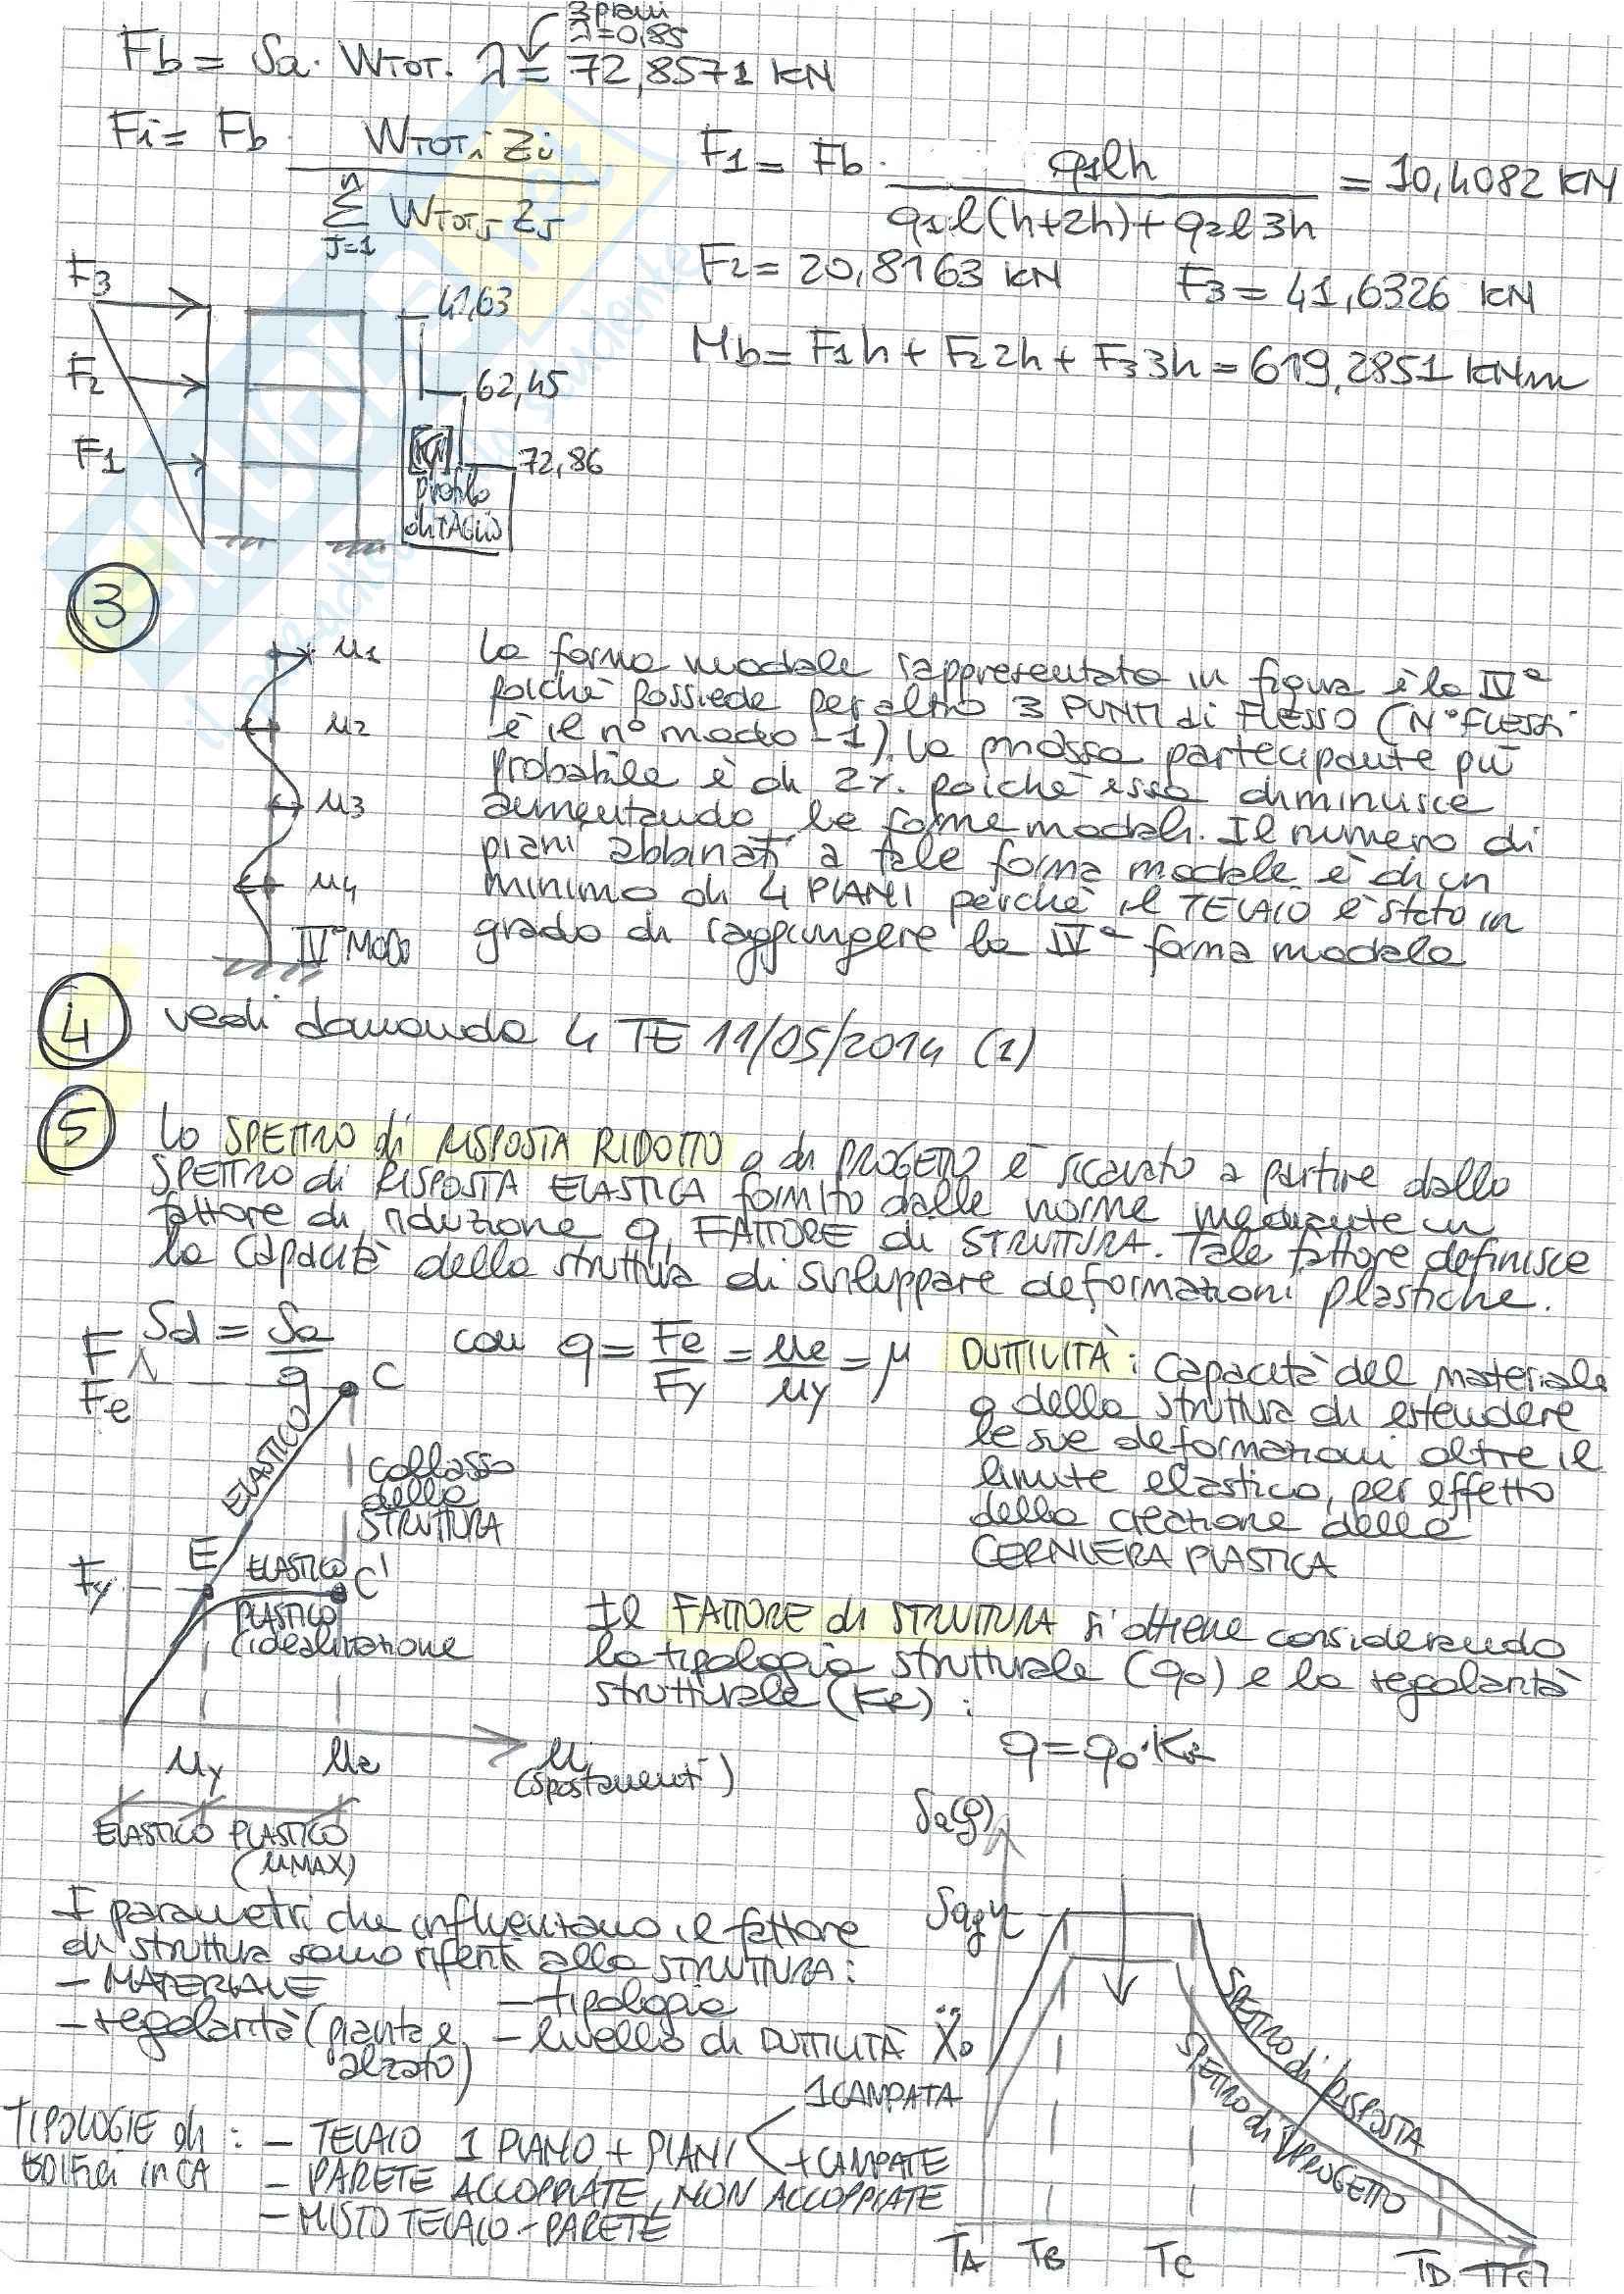 3 piani
λ=0,85
Fb = Sa · WTOT · λ = 72,8571 KN
Fi = Fb · WTOTi Zi / Σ(j=1, n) WTOTj Zj
F1 = Fb · q1lh / (q1l(h+2h) + q2l3h) = 10,4082 KN
F2 = 20,8163 KN F3 = 41,6326 KN
Mb = F1h + F22h + F33h = 619,2851 KNm
F3
F2
F1
41,63
62,45
72,86
[KN]
profilo
di TAGLIO
3
u1
u2
u3
u4
IV° MODO
la forma modale rappresentata in figura è la IVª
poiché possiede per altro 3 PUNTI di FLESSO (N° FLESSI
è il n° modo -1). la massa partecipante più
probabile è di 2%. poiché essa diminuisce
aumentando le forme modali. Il numero di
piani abbinati a tale forma modale è di un
minimo di 4 PIANI perché il TELAIO è stato in
grado di raggiungere la IVª forma modale
4 vedi domanda 4 TE 11/05/2014 (1)
5 Lo SPETTRO di RISPOSTA RIDOTTO o di PROGETTO è ricavato a partire dallo
SPETTRO di RISPOSTA ELASTICA fornito dalle norme mediante un
fattore di riduzione q, FATTORE di STRUTTURA. Tale fattore definisce
la capacità della struttura di sviluppare deformazioni plastiche.
Sd = Sa / q con q = Fe/Fy = ue/uy = μ
DUTTILITÀ: Capacità del materiale
o della struttura di estendere
le sue deformazioni oltre il
limite elastico, per effetto
della creazione della
CERNIERA PLASTICA
F
Fe
C
ELASTICO
collasso
della
STRUTTURA
Fy
E
ELASTICO
C'
PLASTICO
(idealizzazione
uy
ue
u
(spostamenti)
ELASTICO PLASTICO
(uMAX)
Il FATTORE di STRUTTURA si ottiene considerando
la tipologia strutturale (q0) e la regolarità
strutturale (KR):
q = q0 · KR
I parametri che influenzano il fattore
di struttura sono riferiti alla STRUTTURA:
- MATERIALE
- tipologia
- regolarità (pianta e alzato)
- livello di DUTTILITÀ
TIPOLOGIE di EDIFICI in CA :
- TELAIO 1 PIANO, + PIANI < 1 CAMPATA
+ CAMPATE
- PARETE ACCOPPIATE, NON ACCOPPIATE
- MISTO TELAIO - PARETE
Sa(g)
Sagη
Ẍo
SPETTRO di RISPOSTA
SPETTRO di PROGETTO
TA TB TC TD